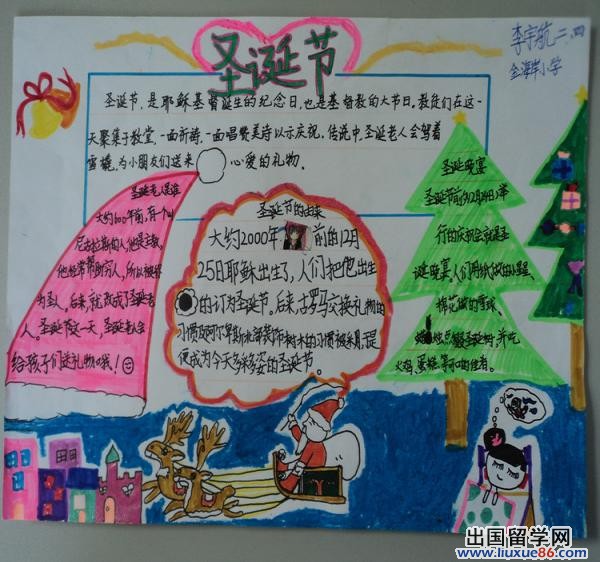 圣诞节
李宇航 二.四
金海岸小学
圣诞节,是耶稣基督诞生的纪念日,也是基督教的大节日。教徒们在这一
天聚集于教堂,一面祈祷,一面唱赞美诗以示庆祝,传说中,圣诞老人会驾着
雪橇,为小朋友们送来 心爱的礼物。
圣诞老人是谁
大约1600年前,有个叫
尼古拉斯的人,他是主教。
他经常帮助穷人,所以被称
为圣人。后来,就改成了圣诞老
人。圣诞节这一天,圣诞老人会
给孩子们送礼物哦!
圣诞节的由来
大约2000年 前的12月
25日耶稣出生了,人们把他出生
的 订为圣诞节。后来,古罗马交换礼物的
习惯及阿尔卑斯北部装饰树木的习惯被采用,就
便成为今天多姿多姿的圣诞节。
圣诞晚宴
圣诞节前夕(12月24日)举
行的庆祝会就是圣
诞晚宴。人们用纸做的小星星、
棉花做的雪球、
蜡烛点缀圣诞树,并吃
火鸡、蛋糕、等可口的佳肴。
出国留学网
www.liuxue86.com